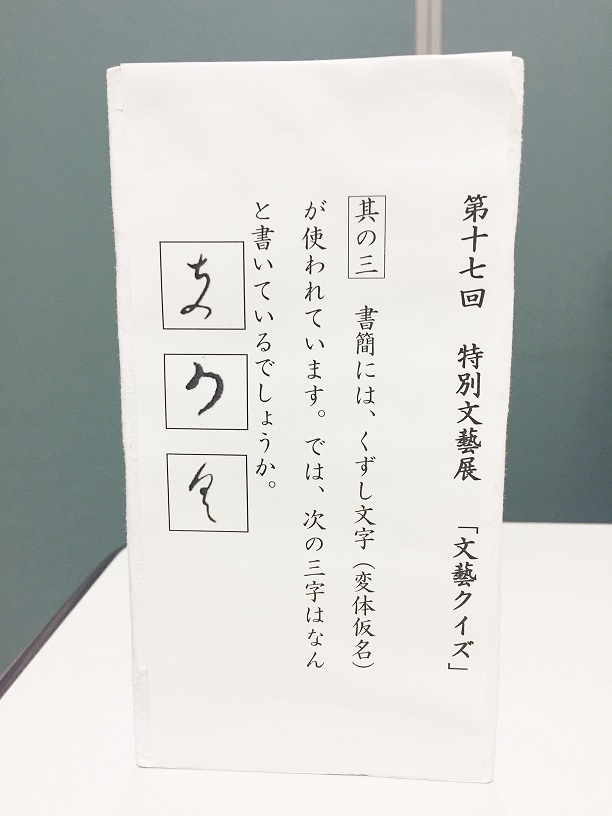 第十七回　特別文藝展　「文藝クイズ」
其の三　書簡には、くずし文字（変体仮名）
が使われています。では、次の三字はなん
と書いているでしょうか。